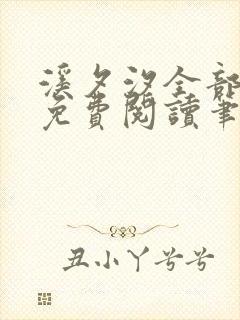 溪夕汐全部
免費閱讀筆
丑小丫兮兮